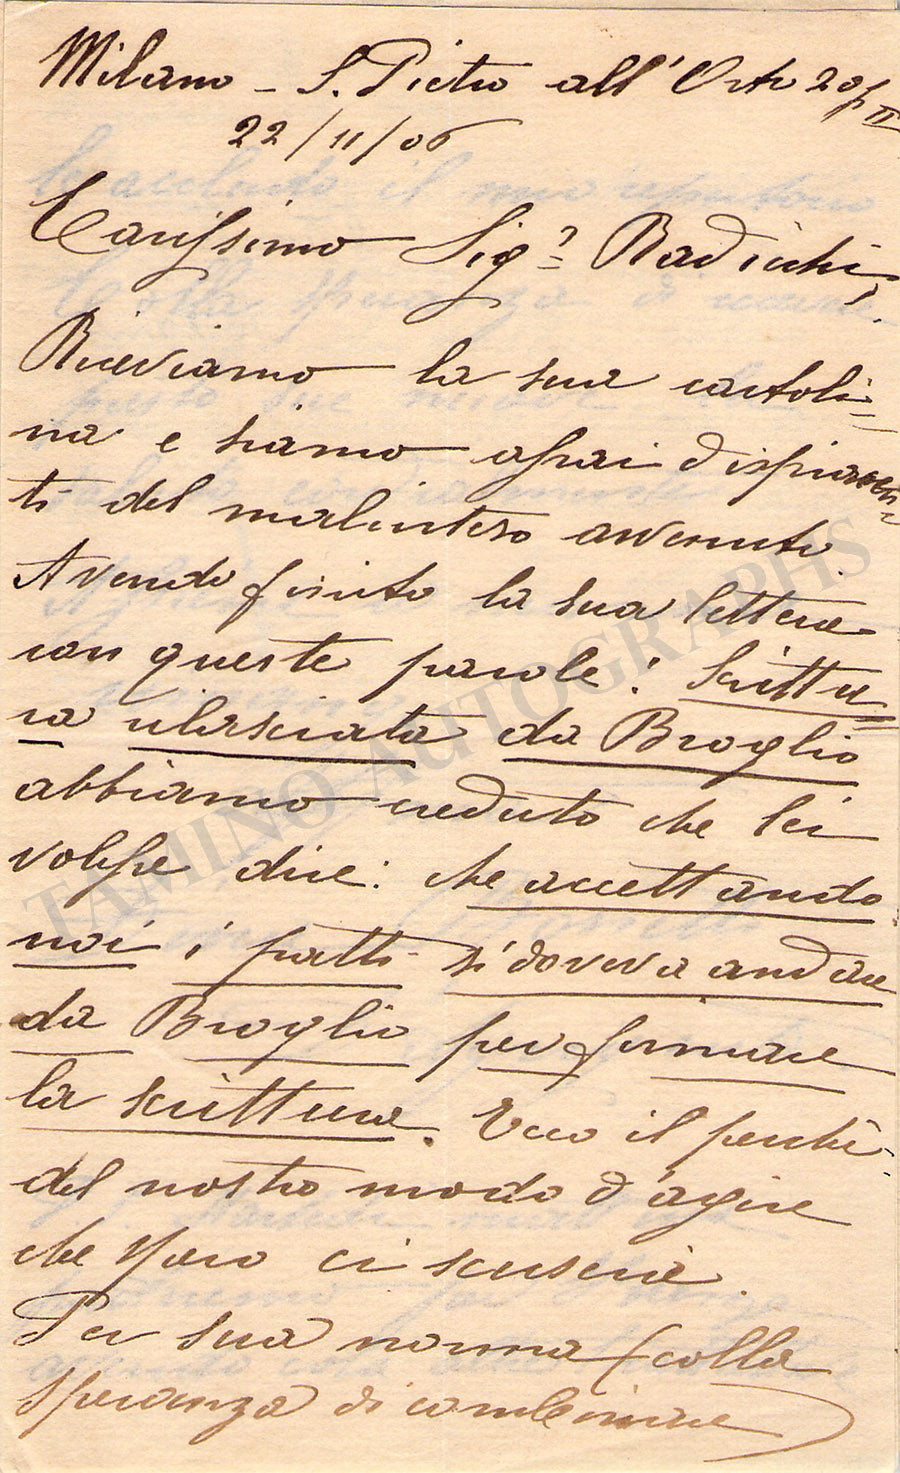 Milano - S. Pietro all'Orto 20 p II
22/11/06
Carissimo Sigr Radicchi,
Riceviamo la sua cartoli=
na e siamo assai dispiacen=
ti del malinteso avvenuto.
Avendo finito la sua lettera
con queste parole: Scrittu=
ra rilasciata da Broglio
abbiamo creduto che lei
volesse dire: che accettando
noi i patti si doveva andare
da Broglio per firmare
la scrittura. Ecco il perchè
del nostro modo d'agire
che spero ci scuserà.
Per sua norma (colla
speranza di combinare)
TAMINO AUTOGRAPHS